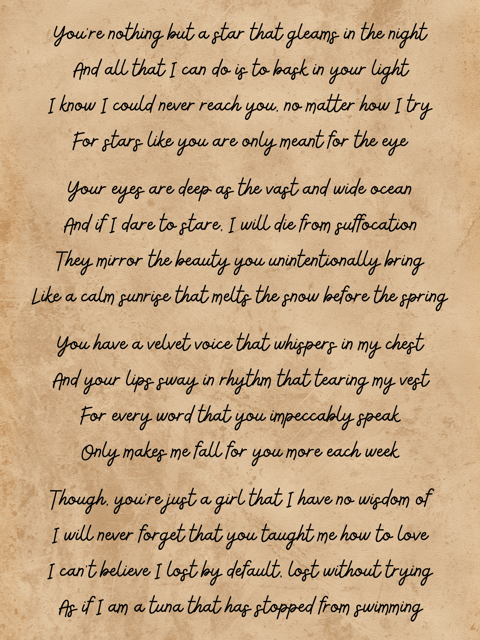 You're nothing but a star that gleams in the night
And all that I can do is to bask in your light
I know I could never reach you, no matter how I try
For stars like you are only meant for the eye
Your eyes are deep as the vast and wide ocean
And if I dare to stare, I will die from suffocation
They mirror the beauty you unintentionally bring
Like a calm sunrise that melts the snow before the spring
You have a velvet voice that whispers in my chest
And your lips sway in rhythm that tearing my vest
For every word that you impeccably speak
Only makes me fall for you more each week
Though, you're just a girl that I have no wisdom of
I will never forget that you taught me how to love
I can't believe I lost by default, lost without trying
As if I am a tuna that has stopped from swimming